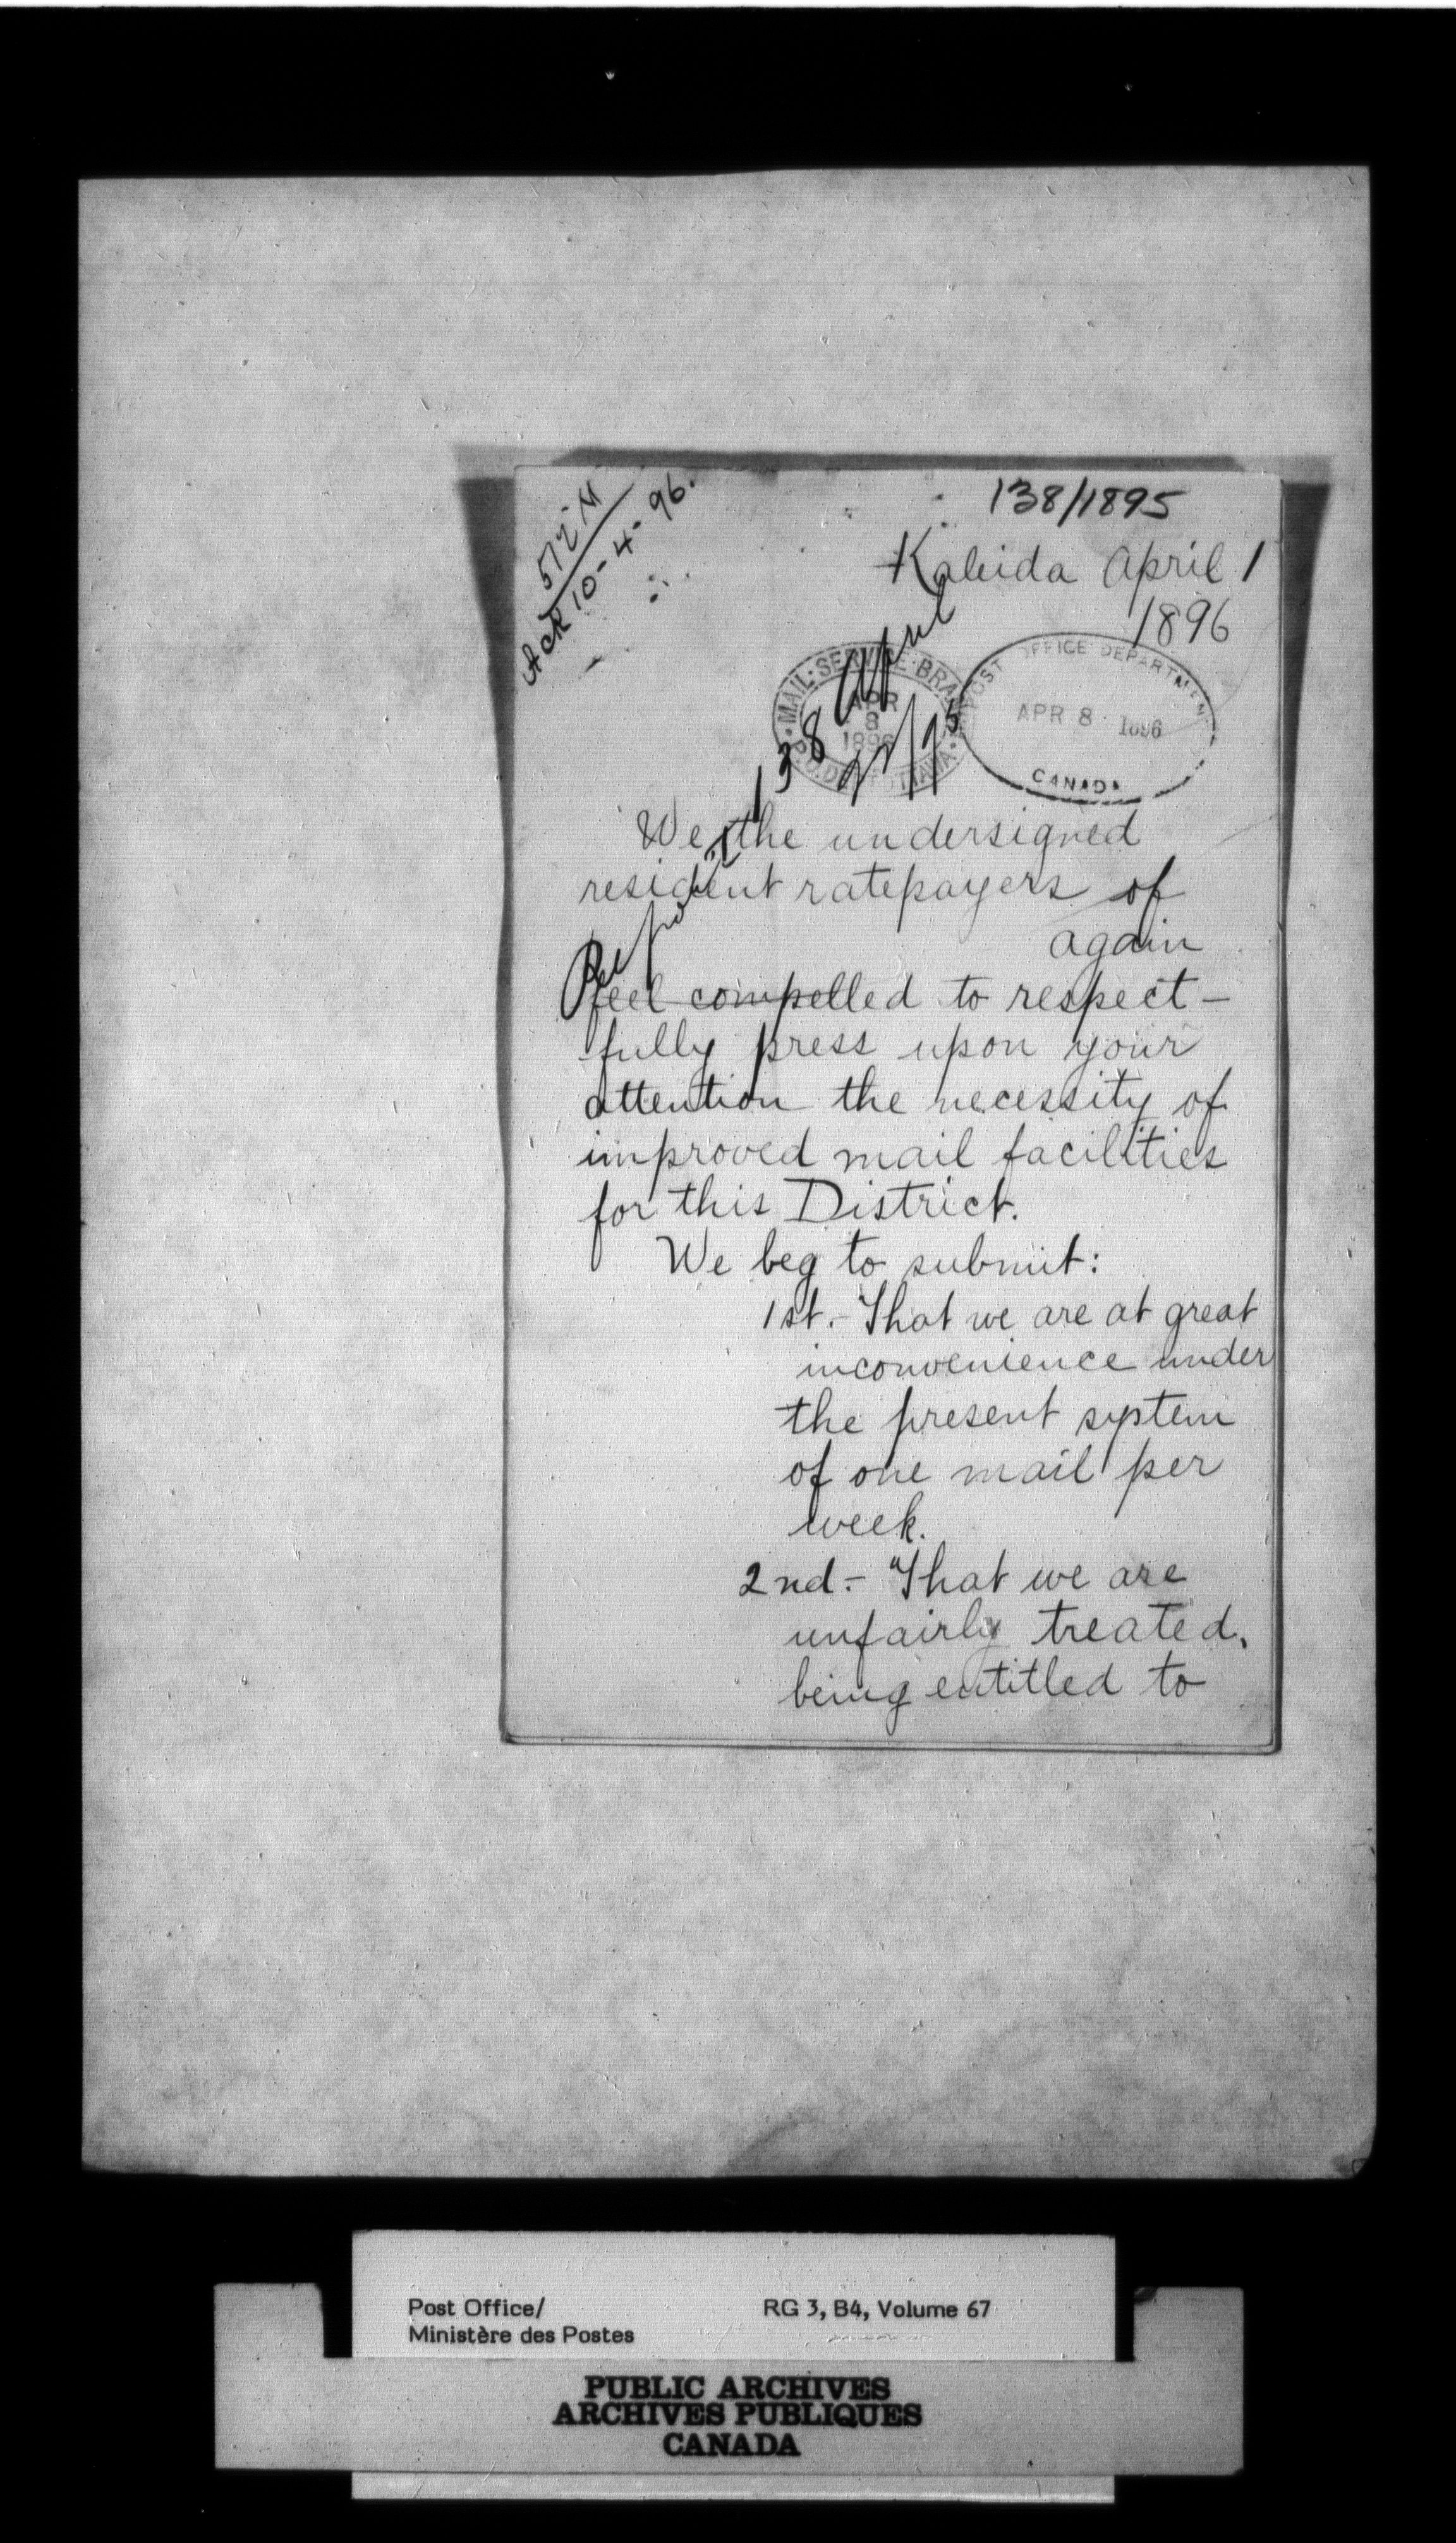 138/1895
512 M
Ack 10-4-96.
Kaleida April 1
1896
MAIL·SERVICE·BRANCH
APR
8
1896
P.O. DEPT OTTAWA
POST OFFICE DEPARTMENT
APR 8 1896
CANADA
138 April
22/95
We, the undersigned
resident ratepayers of
again
feel compelled to respect-
fully press upon your
attention the necessity of
improved mail facilities
for this District.
We beg to submit:
1st.- That we are at great
inconvenience under
the present system
of one mail per
week.
2nd.- That we are
unfairly treated,
being entitled to
Post Office/
Ministère des Postes
RG 3, B4, Volume 67
PUBLIC ARCHIVES
ARCHIVES PUBLIQUES
CANADA